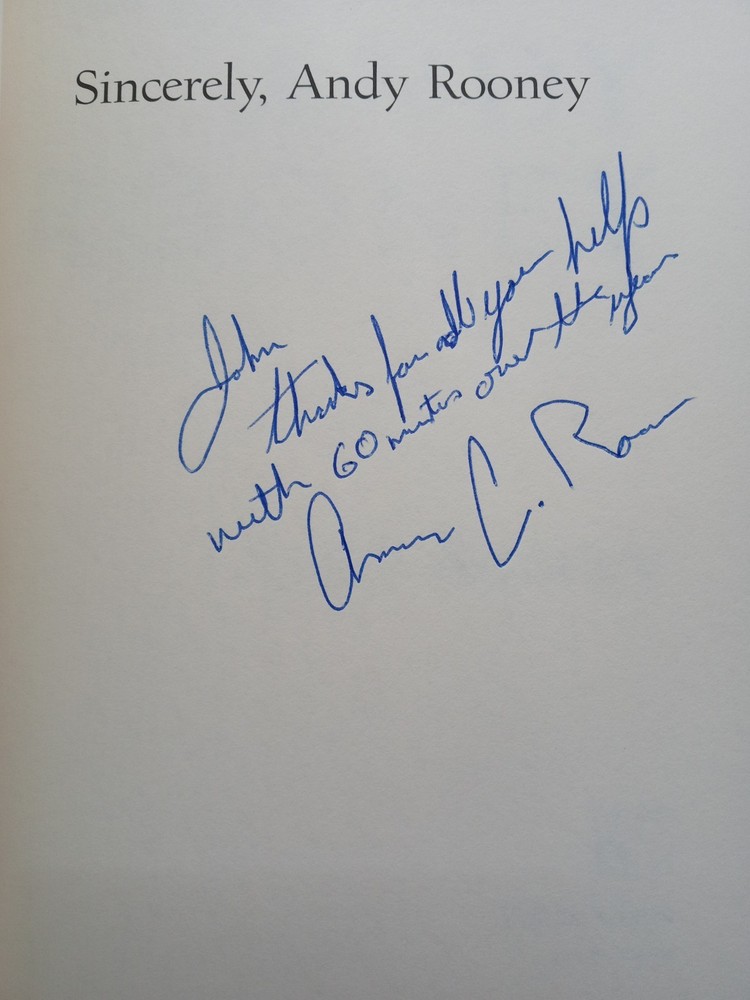 Sincerely, Andy Rooney
John
thanks for all your help
with 60 minutes over the years
C. Rooney